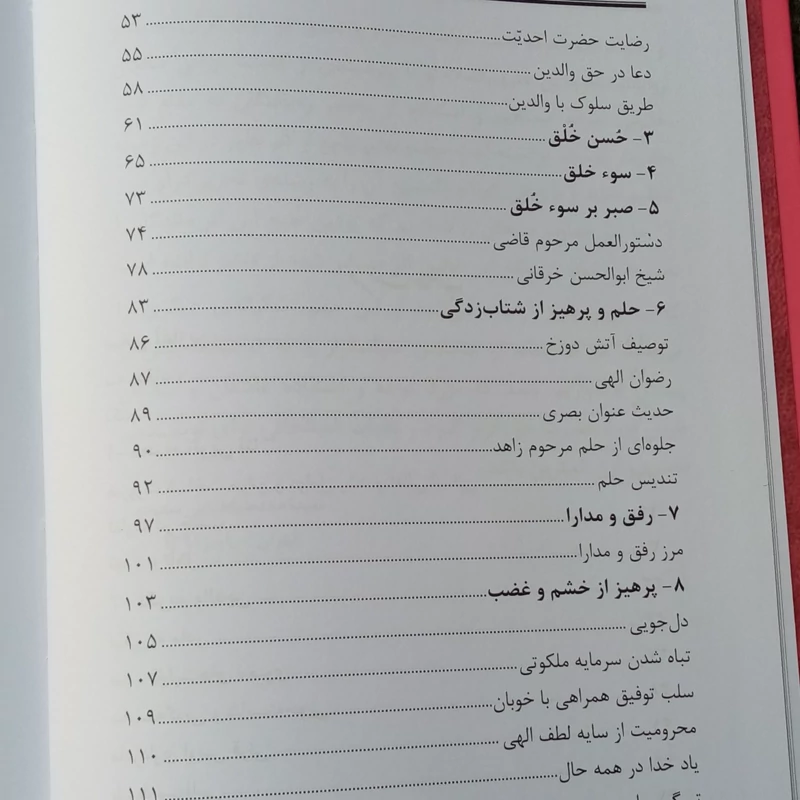 رضایت حضرت احدیّت ۵۳
دعا در حق والدین ۵۵
طریق سلوک با والدین ۵۸
۳- حُسن خُلْق ۶۱
۴- سوء خلق ۶۵
۵- صبر بر سوء خُلق ۷۳
دستورالعمل مرحوم قاضی ۷۴
شیخ ابوالحسن خرقانی ۷۸
۶- حلم و پرهیز از شتاب‌زدگی ۸۳
توصیف آتش دوزخ ۸۶
رضوان الهی ۸۷
حدیث عنوان بصری ۸۹
جلوه‌ای از حلم مرحوم زاهد ۹۰
تندیس حلم ۹۲
۷- رفق و مدارا ۹۷
مرز رفق و مدارا ۱۰۱
۸- پرهیز از خشم و غضب ۱۰۳
دل‌جویی ۱۰۵
تباه شدن سرمایه ملکوتی ۱۰۷
سلب توفیق همراهی با خوبان ۱۰۹
محرومیت از سایه لطف الهی ۱۱۰
یاد خدا در همه حال ۱۱۱